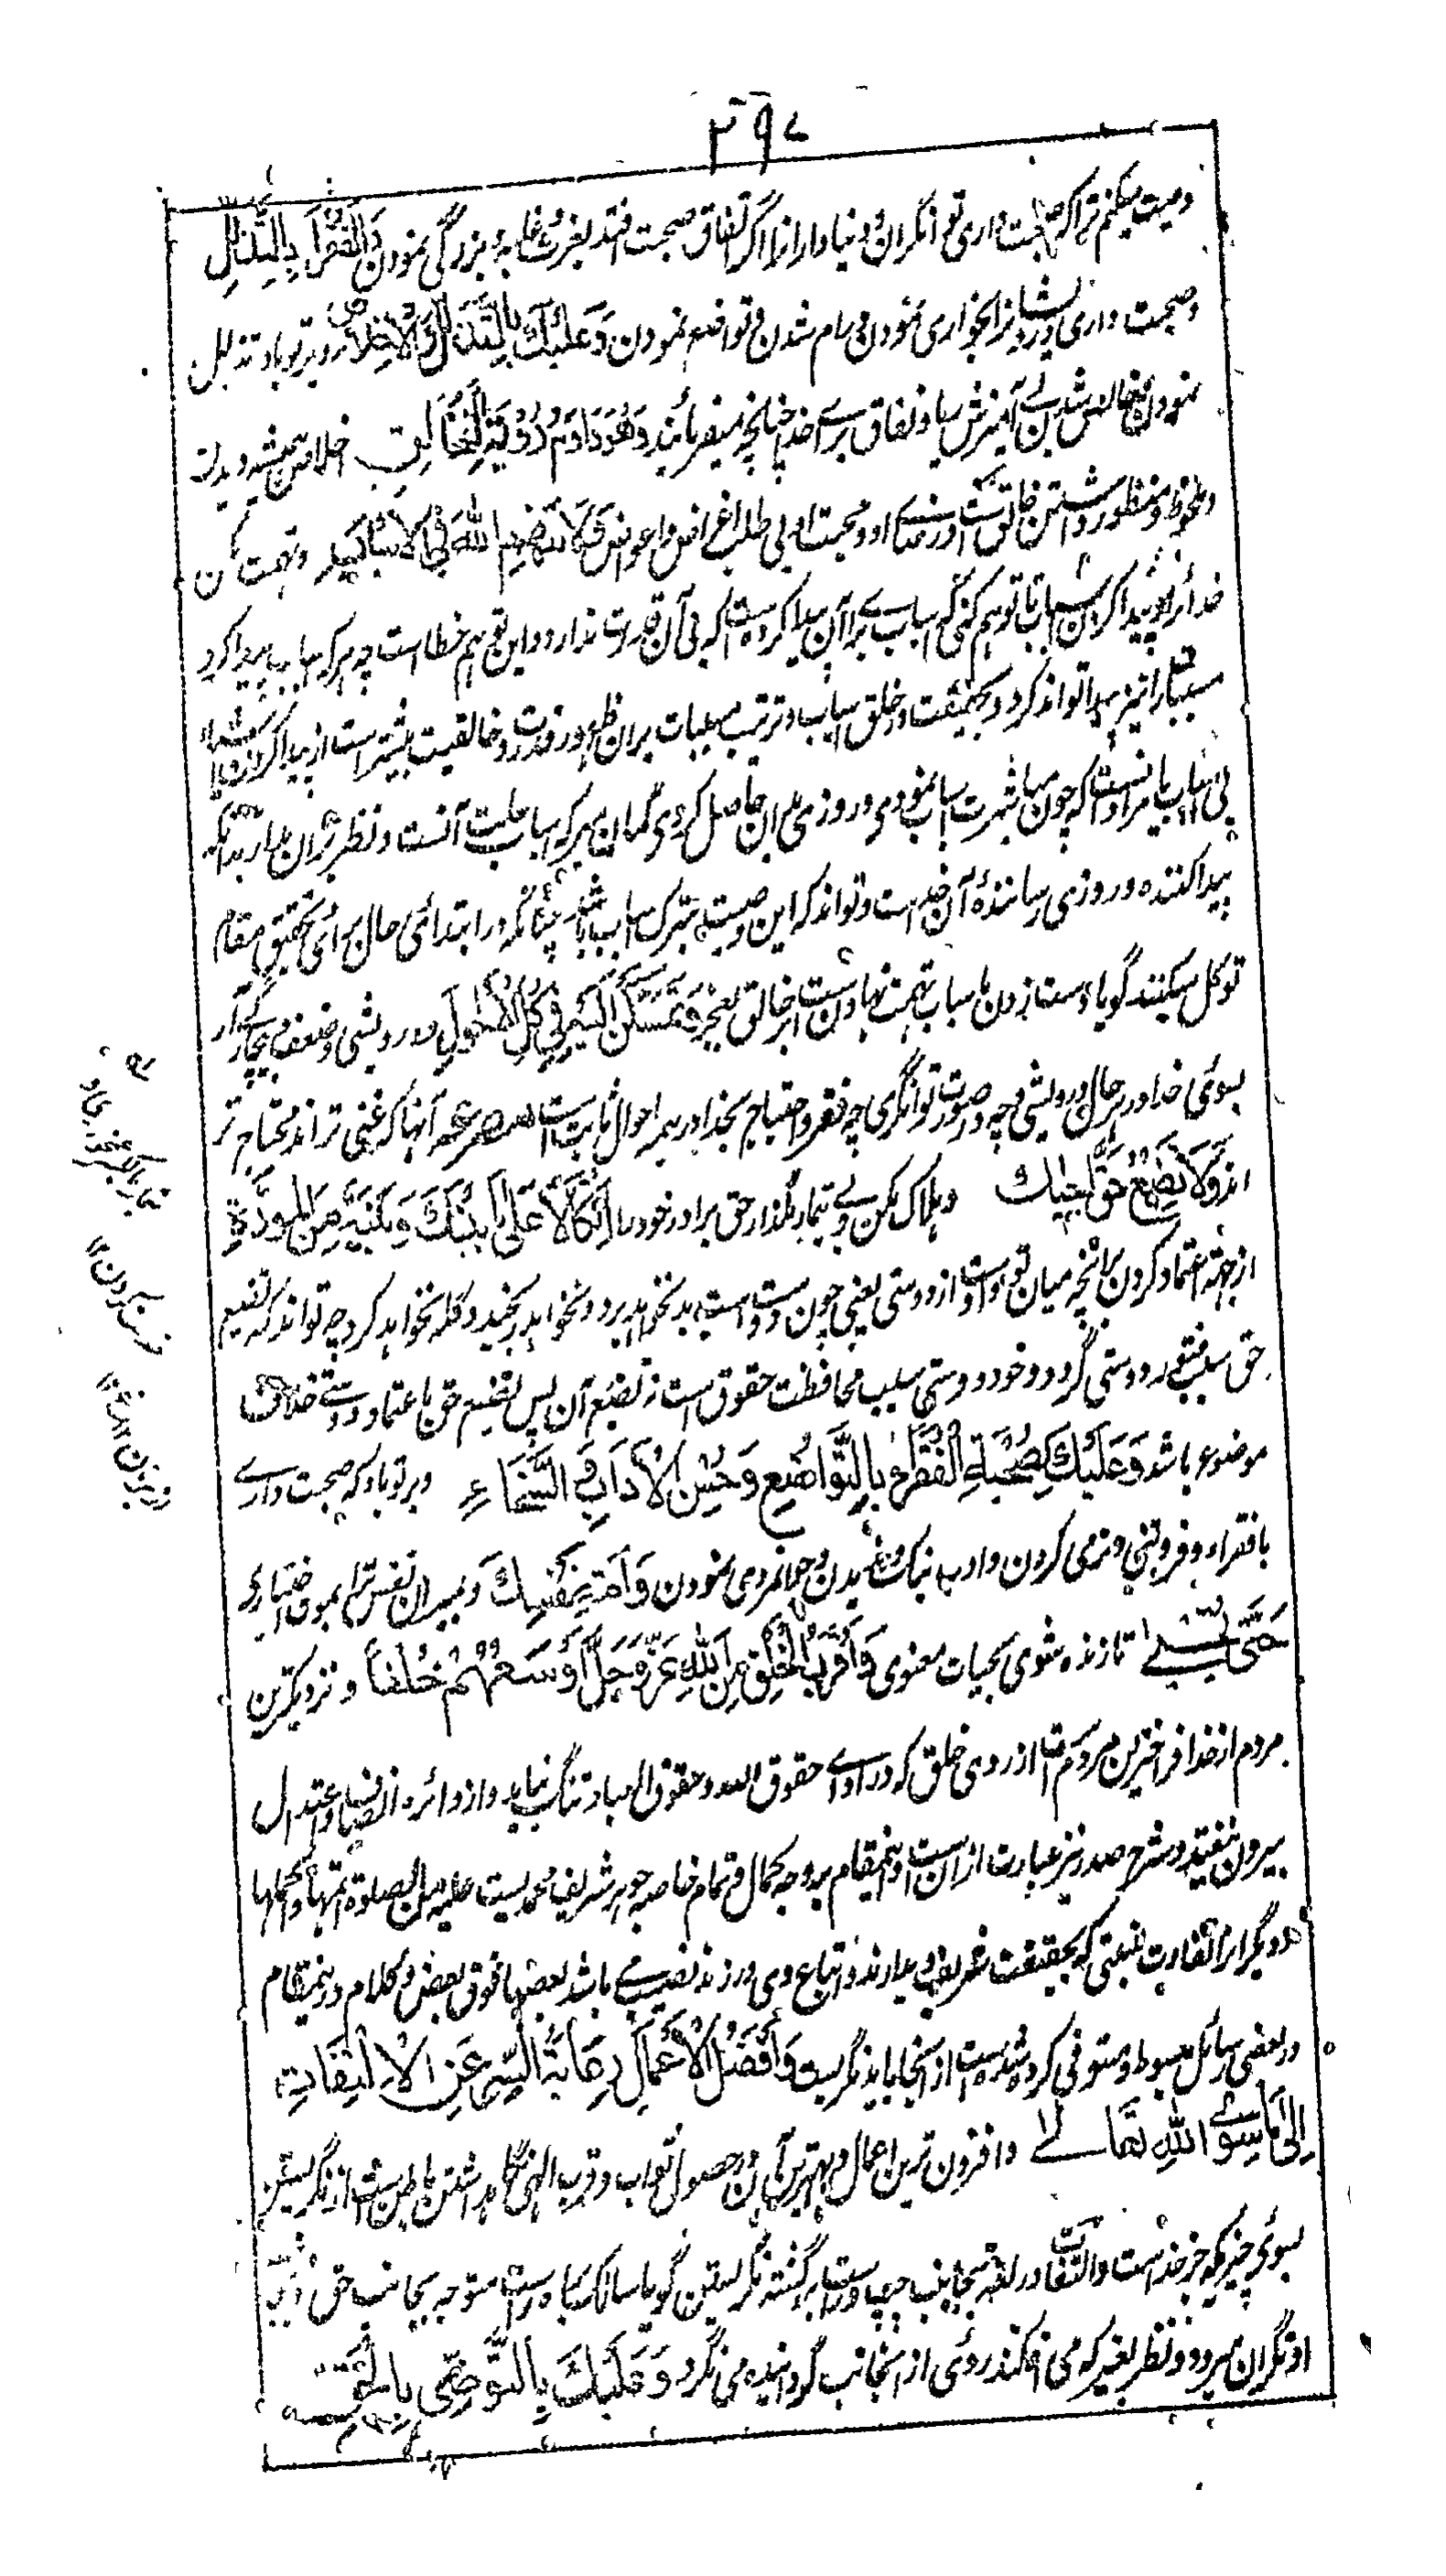 ۳۹۷
وصیت میکنم ترا که صحبت داری توانگران و دنیاداران را اگر اتفاق صحبت افتد بغرت و بزرگی نمودن وَالْفُقَرَاءَ بِالتَّذَلُّلِ
وصحبت داری درویشانرا بخواری نمودن و رام شدن و تواضع نمودن وَعَلَيْكَ بِالتَّذَلُّلِ وَالْاِخْلَاصِ و بر تو باد تذلل
نمودن و خالص شدن بی آمیزش ریا و نفاق برای خدا چنانچه میفرمایند وَهُوَ دَوَامُ رُؤْيَةِ الْخَالِقِ اخلاص همیشه دیدن
و ملحوظ و منظور داشتن خالق است و رضای او و محبت او بی طلب اغراض و اعواض وَلَا تَتَّهِمِ اللّٰهَ فِي الْاَسْبَابِ و تهمت مکن
خدا را در پیدا کردن اسباب تا توهم کنی که اسباب برای آن پیدا کرده است که بی آن قدرت ندارد و این توهم خطا است چه هر که اسباب پیدا کرد
مسببات را نیز پیدا تواند کرد و بحقیقت در خلق اسباب و ترتیب مسببات بران ظهور قدرت و خالقیت بیشتر است از پیدا کردن اشیاء
بی اسباب یا مراد آنست که چون مباشرت اسباب نمودی و روزی بدان حاصل کردی گمان مبر که اسباب جالب آنست و نظر بران مدار بدانکه
پیدا کننده و روزی رسانندهٔ آن خدا است و تواند که این وصیت بترک اسباب باشد چنانکه در ابتدائی حال برائی تحقیق مقام
توکل میکنند گویا دست زدن باسباب تهمت نهادنست بر خالق بعجز وَتَمَسْكَنْ اِلَيْهِ فِي كُلِّ الْاَحْوَالِ و درویشی و ضعف و بیچارگی آر
بسوئی خدا در هر حال درویشی چه در صورت توانگری چه فقر و احتیاج بخدا در همه احوال ثابت است مصرعه آنها که غنی تر اند محتاج تر
اند وَلَا تُضِعْ حَقَّ اَخِيْكَ و هلاک مکن و بی تیمار مگذار حق برادر خود را اِتِّكَالًا عَلٰى مَا بَيْنَكَ وَبَيْنَهٗ مِنَ الْمَوَدَّةِ
از جهته اعتماد کردن بر آنچه میان تو و اوست از دوستی یعنی چون دوست است بد نخواهد برد و نخواهد رنجید و گله نخواهد کرد چه تواند که تضییع
حق سبب فتور دوستی گردد و خود دوستی سبب محافظت حقوق است نه تضییع آن پس تضییع حق باعتماد دوستی خلاف
موضوع باشد وَعَلَيْكَ بِصُحْبَةِ الْفُقَرَاءِ بِالتَّوَاضُعِ وَحُسْنِ الْاَدَابِ وَالسَّخَاءِ و بر تو باد که صحبت داری
با فقرا بفروتنی و نرمی کردن و ادب نیک ورزیدن و جوانمردی نمودن وَاَمِتْ نَفْسَكَ و بمیران نفس ترا بموت اختیاری
حَتّٰى تَحْيٰى تا زنده شوی بحیات معنوی وَاَقْرَبُ الْخَلْقِ مِنَ اللّٰهِ عَزَّ وَجَلَّ اَوْسَعُهُمْ خُلُقًا و نزدیکترین
مردم از خدا فراخترین مردم است از روی خلق که در ادای حقوق الله و حقوق العباد تنگ نیاید و از دائره انصاف و اعتدال
بیرون نیفتد و شرح صدر نیز عبارت ازانست و اینمقام بر وجه کمال و تمام خاصه جوهر شریف محمدیست علیه من الصلوة اتمها و اکملها
و دیگرانرا بتفاوت نسبتی که بحقیقت شریف وی دارند و اتباع وی ورزند نصیبی باشد بعضها فوق بعض و کلام درینمقام
در بعضی رسائل مبسوط و مستوفی کرده شده است از آنجا باید نگریست وَاَفْضَلُ الْاَعْمَالِ رِعَايَةُ السِّرِّ عَنِ الْاِلْتِفَاتِ
اِلٰى مَا سِوَى اللّٰهِ تَعَالٰى و افزون ترین اعمال و بهترین آن در حصول ثواب و قرب الهی نگاهداشتن باطن است از نگریستن
بسوئی چیزیکه جز خداست و التفات در لغت بجانب چپ و راست برگشته نگریستن گویا سالک براه راست متوجه بجانب حق و
او نگران میرود و نظر بغیر که می افکند روئی از آنجانب گردانیده می نگرد وَعَلَيْكَ بِالتَّوَاصِيْ بِالْحَقِّ